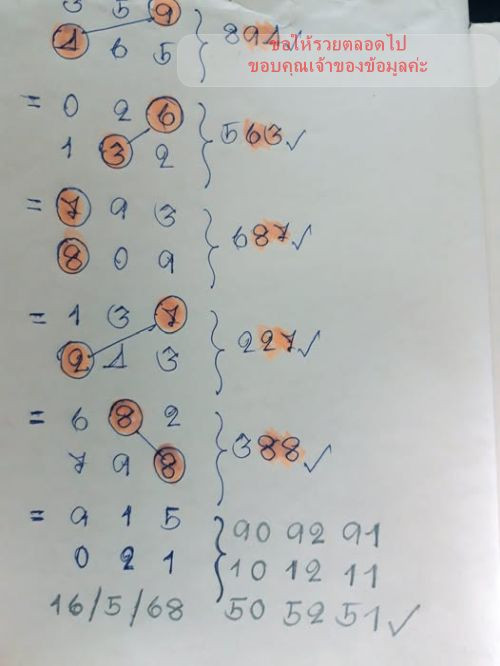 3 5 9
4 6 5 } 894 ✓
ขอให้รวยตลอดไป
ขอบคุณเจ้าของข้อมูลค่ะ
= 0 2 6
1 3 2 } 563 ✓
= 7 9 3
8 0 9 } 687 ✓
= 1 3 7
2 4 3 } 227 ✓
= 6 8 2
7 9 8 } 388 ✓
= 9 1 5
0 2 1 }
90 92 91
10 12 11
16/5/68 50 52 51 ✓